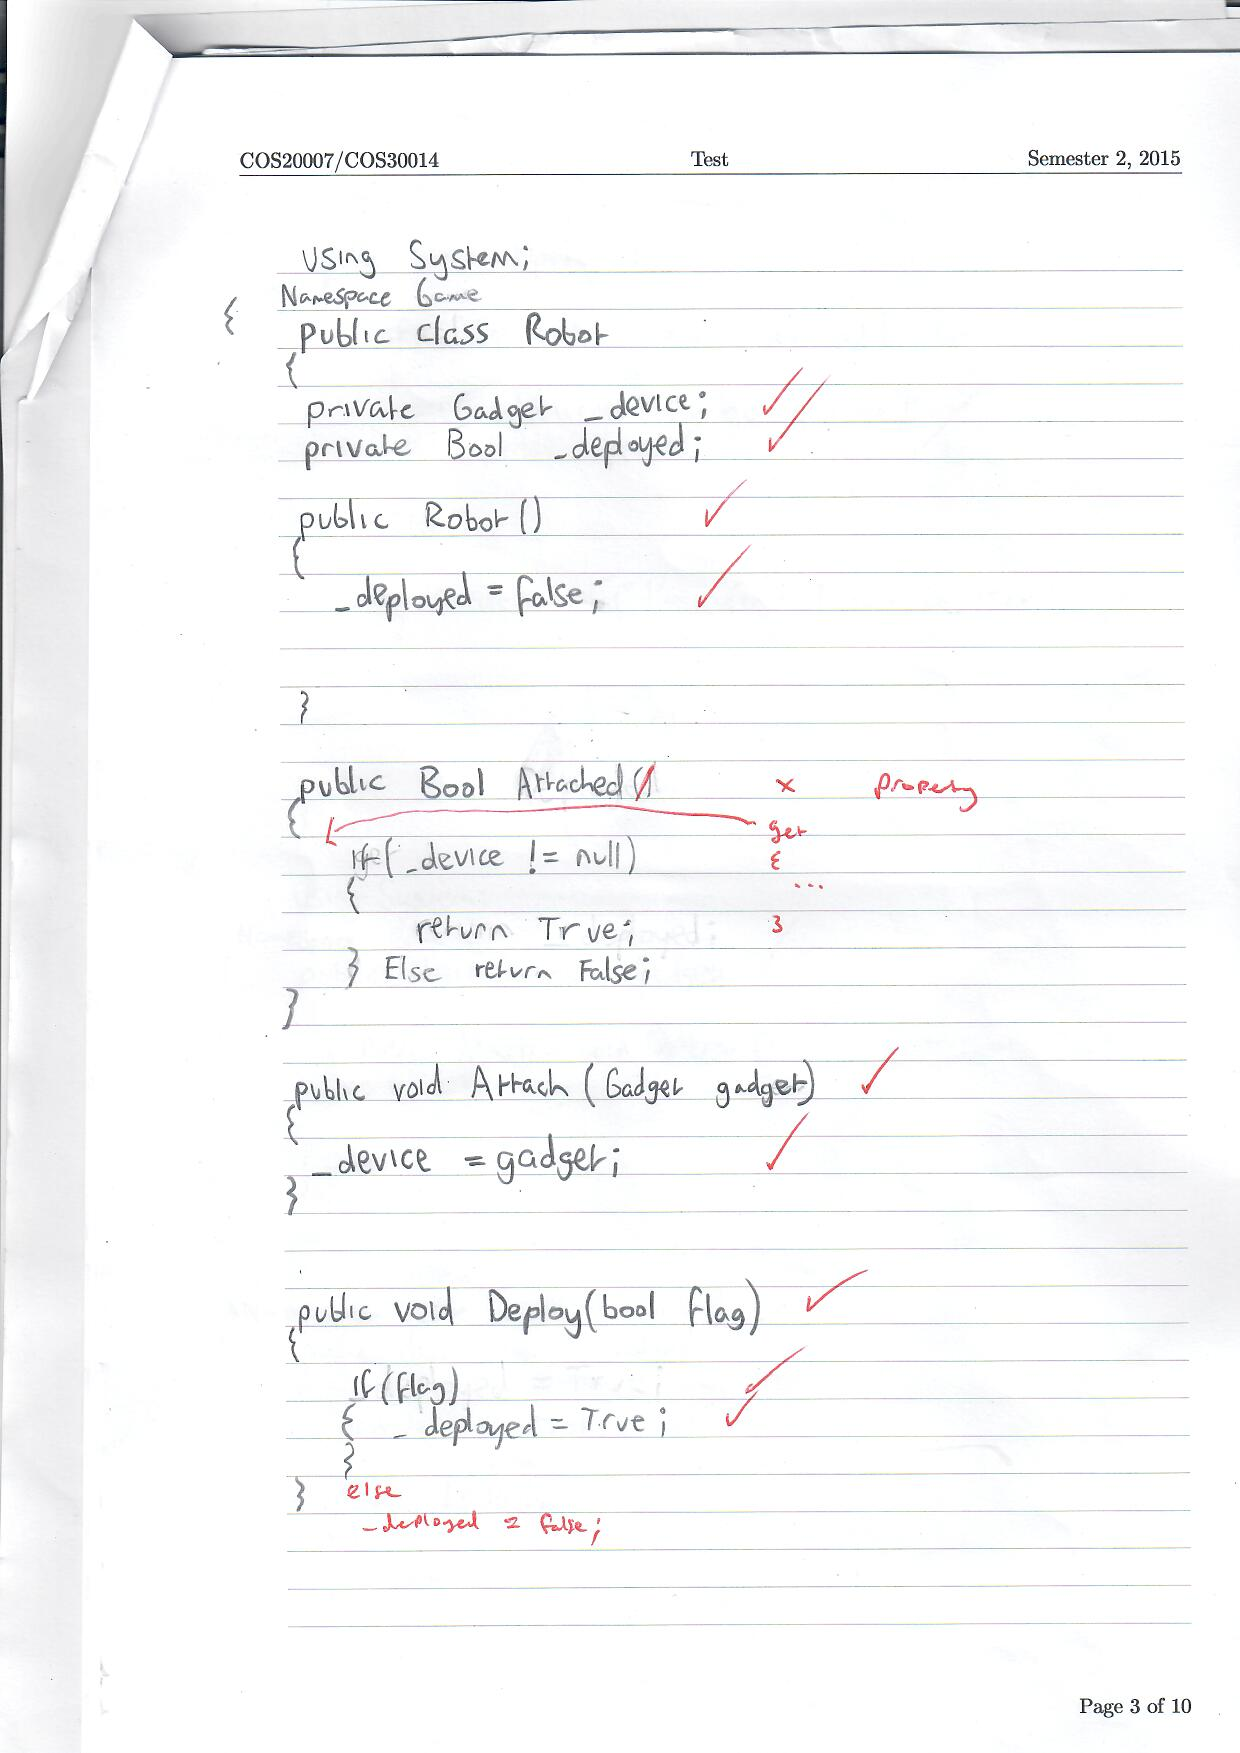 COS20007/COS30014 Test Semester 2, 2015
Using System;
Namespace Game
{
public class Robot
{
private Gadget _device;
private Bool _deployed;
public Robot()
{
_deployed = false;
}
public Bool Attached() × Property
{
get
If(_device != null) {
{ ...
return True; }
} Else return False;
}
public void Attach (Gadget gadget)
{
_device = gadget;
}
public void Deploy(bool flag)
{
If(flag)
{ _deployed = True;
}
} else
_deployed = false;
Page 3 of 10